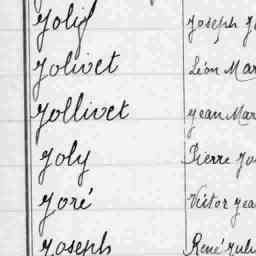 Jolif Joseph
Jolivet Léon Mar
Jollivet Jean Mar
Joly Pierre
Joré Victor Jea
Joseph René Jul